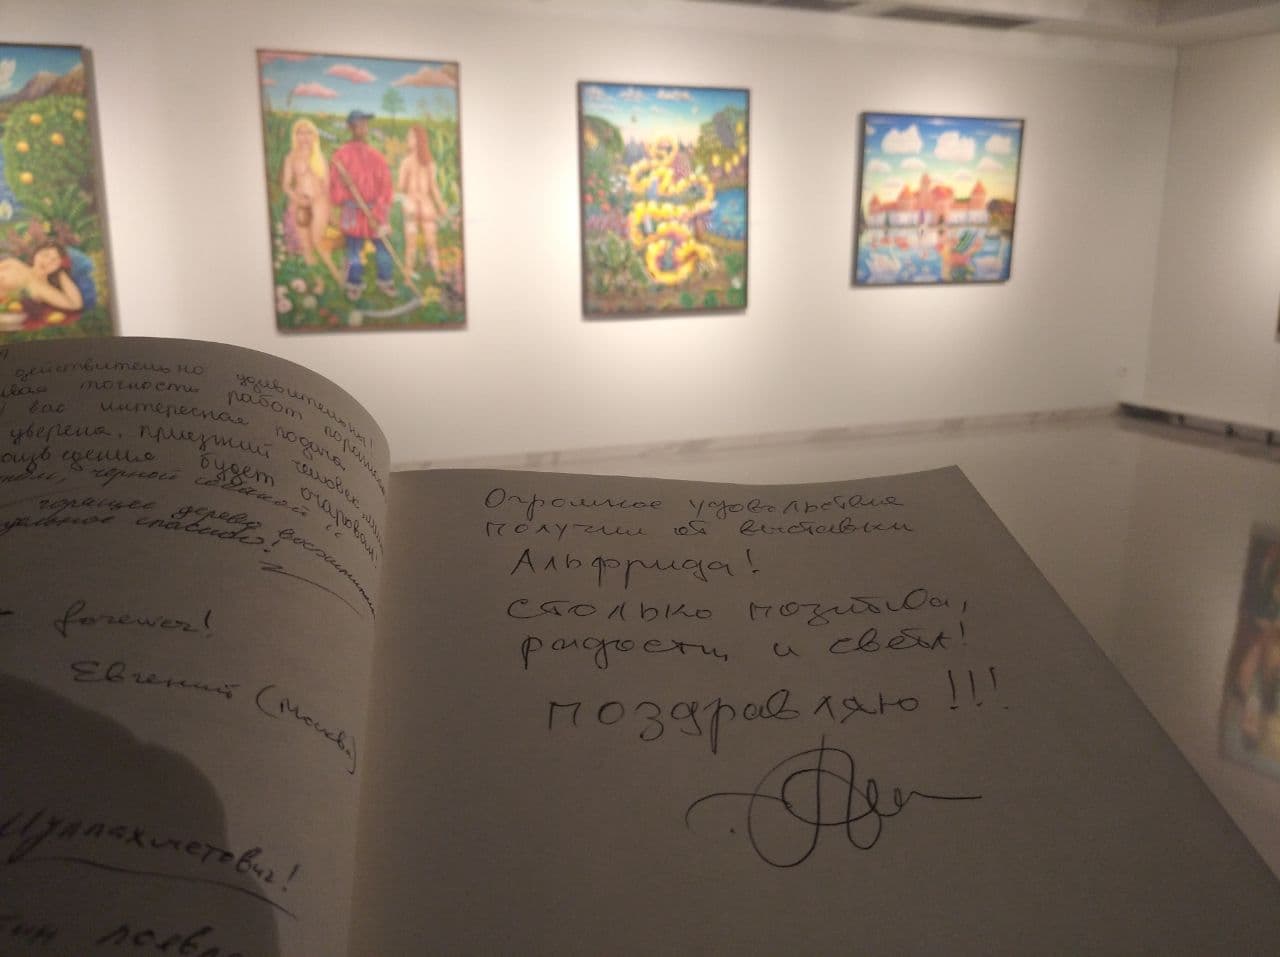 действительно удивительны!
точность работ
вас интересная подача
уверена, приезжий человек
будет очарован!
черной собакой
горящее дерево
спасибо!
forewer!
Евгений (Москва)
Муллахметович!
Огромное удовольствие
получил от выставки
Альфрида!
столько позитива,
радости и света!
поздравляю!!!